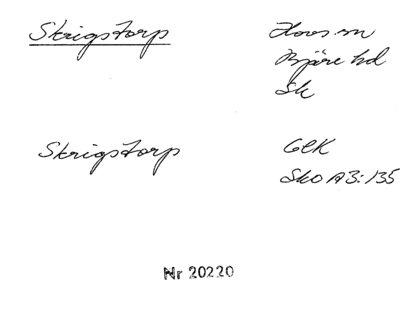 Skrigstorp
Hovs sn
Bjäre hd
Sk
Skrigstorp
GEK
Sko A3:135
Nr 20220